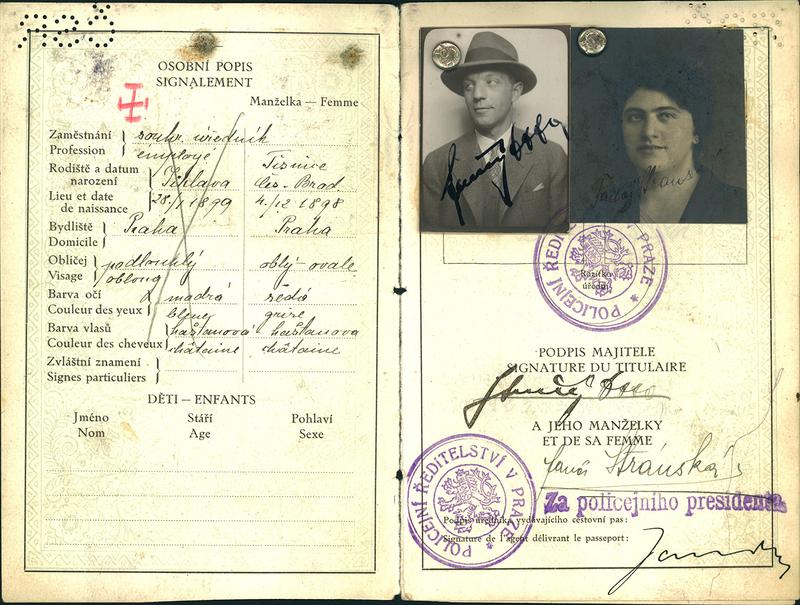 OSOBNÍ POPIS
SIGNALEMENT
Manželka — Femme
Zaměstnání
Profession
soukr. úředník
employé
Rodiště a datum
narození
Lieu et date
de naissance
Jihlava
28/1 1899
Tismice
Čes. Brod
4./12 1898
Bydliště
Domicile
Praha
Praha
Obličej
Visage
podlouhlý
oblong
oblý - ovale
Barva očí
Couleur des yeux
modrá
bleue
šedá
grise
Barva vlasů
Couleur des cheveux
kaštanová
châtaine
kaštanova
châtaine
Zvláštní znamení
Signes particuliers
DĚTI – ENFANTS
Jméno
Nom
Stáří
Age
Pohlaví
Sexe
POLICEJNÍ ŘEDITELSTVÍ V PRAZE
Razítko
úřední
PODPIS MAJITELE
SIGNATURE DU TITULAIRE
A JEHO MANŽELKY
ET DE SA FEMME
Stránská
Za policejního presidenta
Podpis úředníka vydávajícího cestovní pas:
Signature de l'agent délivrant le passeport:
POLICEJNÍ ŘEDITELSTVÍ V PRAZE